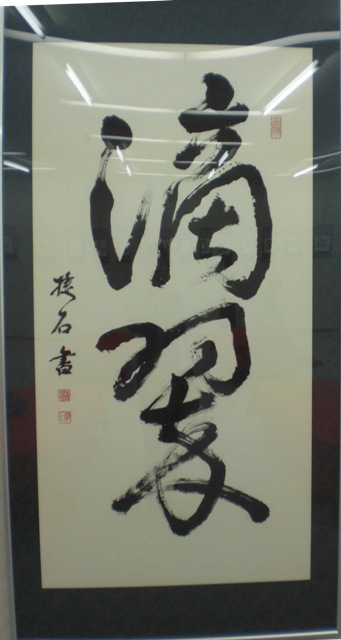 滴翠
石書